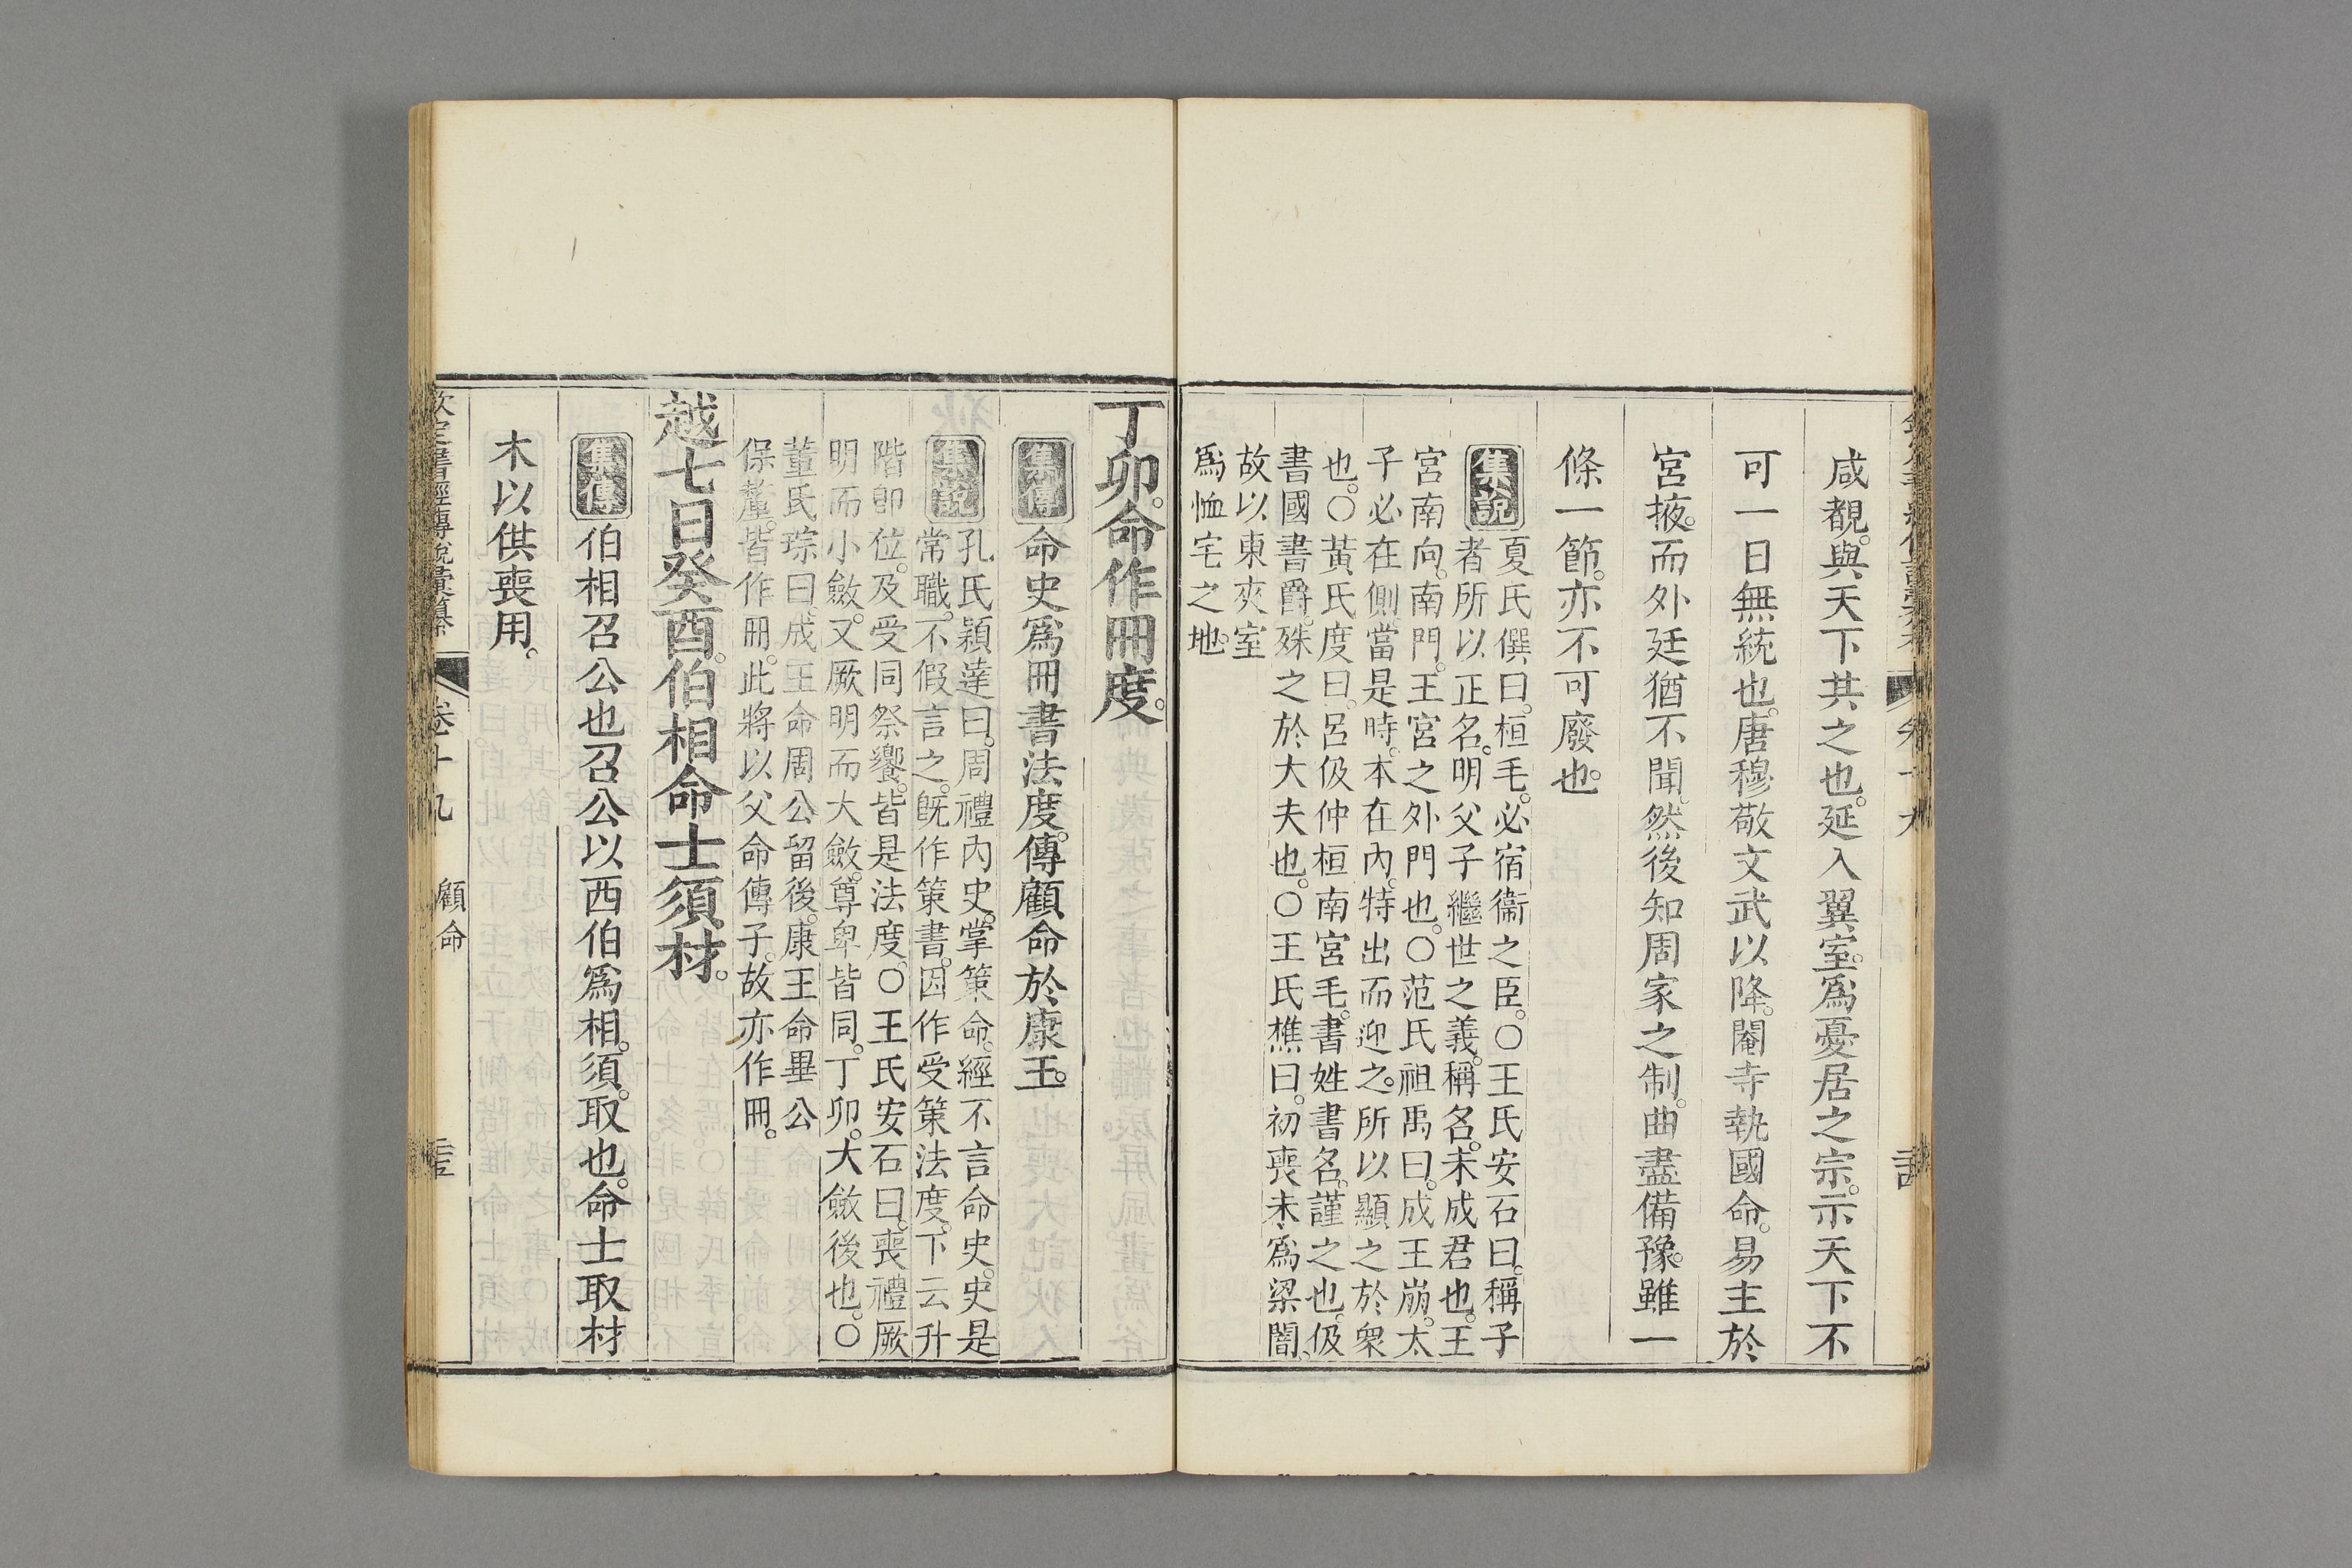 咸覩。與天下共之也。延入翼室。爲憂居之宗。示天下不
可一日無統也。唐穆敬文武以降。閹寺執國命。易主於
宮掖。而外廷猶不聞。然後知周家之制。曲盡備豫。雖一
條一節。亦不可廢也。
集說 夏氏僎曰。桓毛。必宿衞之臣。○王氏安石曰。稱子
者所以正名。明父子繼世之義。稱名。未成君也。王
宮南向。南門。王宮之外門也。○范氏祖禹曰。成王崩。太
子必在側。當是時。本在內。特出而迎之。所以顯之於衆
也。○黃氏度曰。呂伋仲桓南宮毛。書姓書名。謹之也。伋
書國書爵。殊之於大夫也。○王氏樵曰。初喪未爲梁闇。
故以東夾室
爲恤宅之地。
丁卯。命作冊度。
集傳 命史爲冊書法度。傳顧命於康王。
集說 孔氏穎達曰。周禮內史。掌策命。經不言命史。史是
常職。不假言之。旣作策書。因作受策法度。下云升
階卽位。及受同祭饗。皆是法度。○王氏安石曰。喪禮厥
明而小斂。又厥明而大斂。尊卑皆同。丁卯。大斂後也。○
董氏琮曰。成王命周公留後。康王命畢公
保釐。皆作冊。此將以父命傳子。故亦作冊。
越七日癸酉。伯相命士須材。
集傳 伯相召公也召公以西伯爲相。須。取也。命士取材
木以供喪用。
欽定書經傳說彙纂 卷十九 顧命